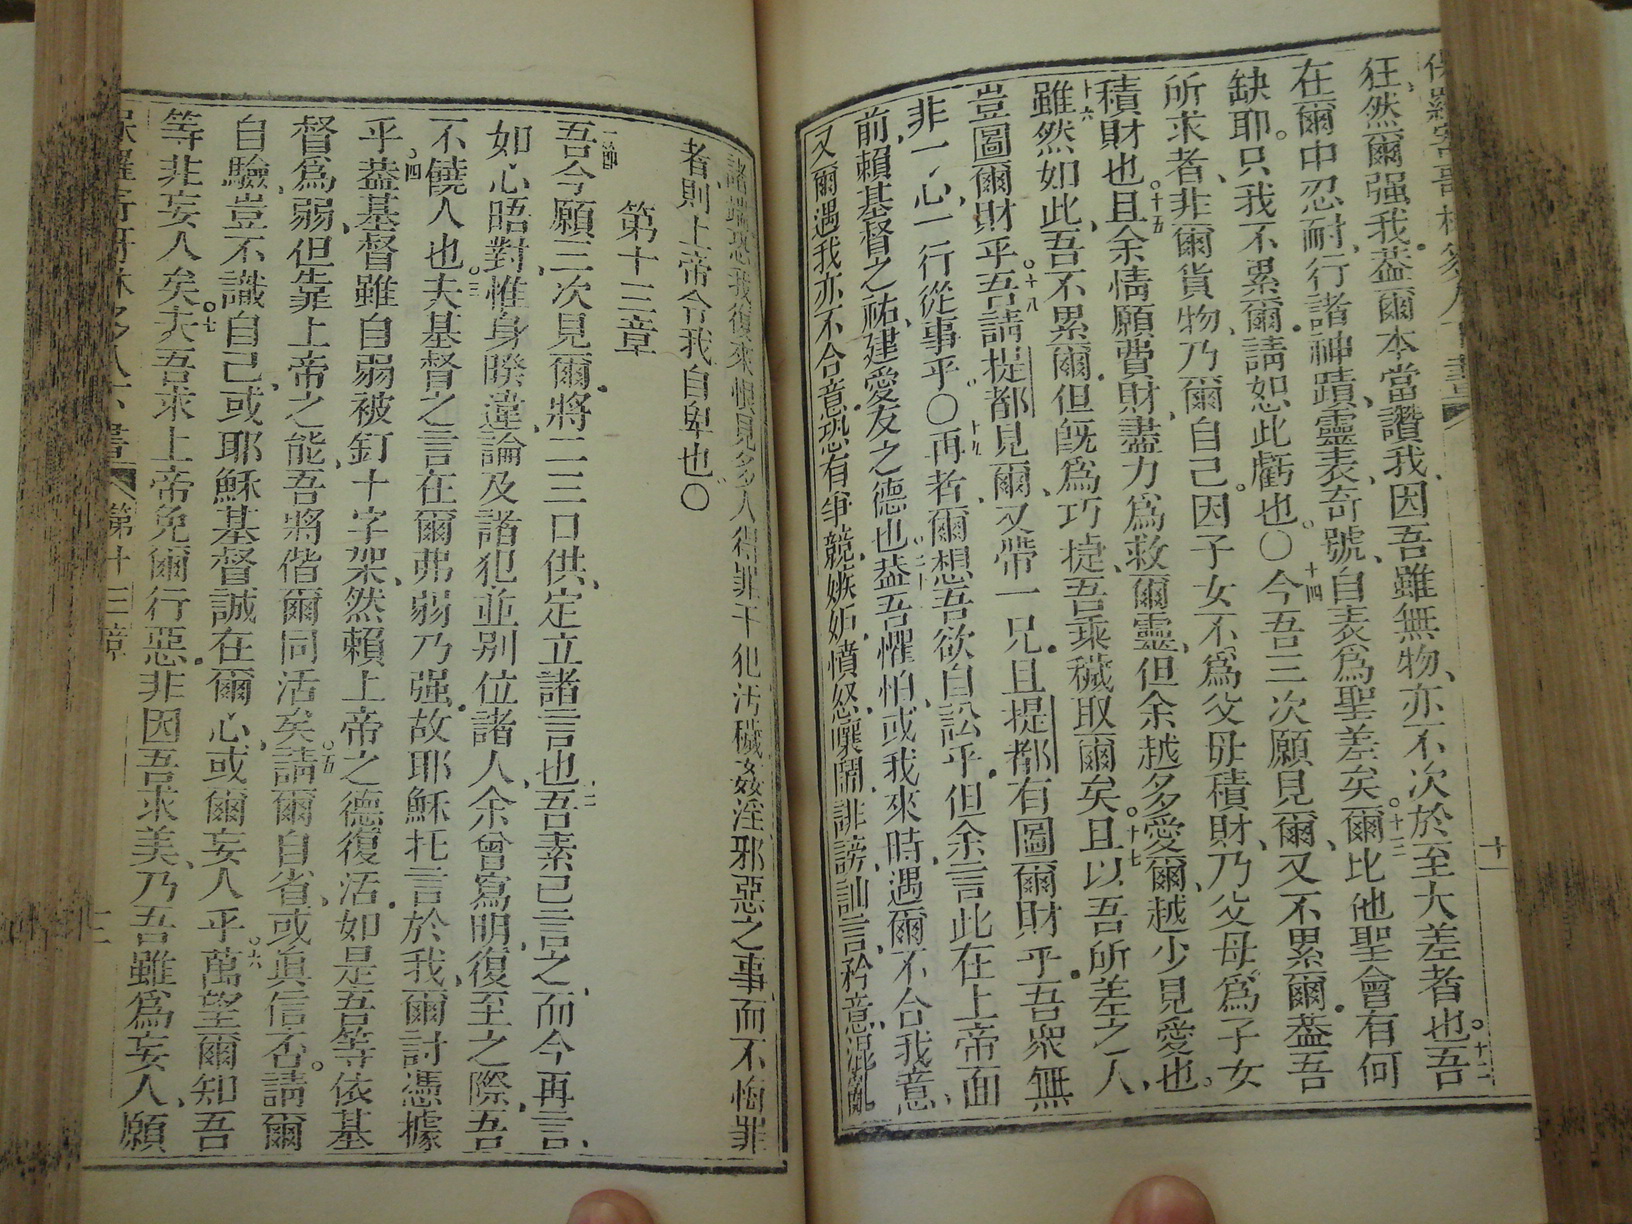 狂、然爾强我。葢爾本當讚我、因吾雖無物、亦不次於至大差者也。十二吾
在爾中忍耐、行諸神蹟、靈表、奇號、自表爲聖差矣。十三爾比他聖會有何
缺耶。只我不累爾、請恕此虧也。〇十四今吾三次願見爾、又不累爾。葢吾
所求者、非爾貨物、乃爾自己。因子女不爲父母積財、乃父母爲子女
積財也。十五且余情願費財、盡力爲救爾靈、但余越多愛爾、越少見愛也。
十六雖然如此、吾不累爾。但旣爲巧㨗、吾乘穢取爾矣。十七且以吾所差之人、
豈圖爾財乎。十八吾請提都見爾、又帶一兄。且提都有圖爾財乎。吾衆無
非一心、一行從事乎〇十九再者、爾想吾欲自訟乎。但余言此在上帝面
前、賴基督之祐、建愛友之德也。二十葢吾懼怕、或我來時、遇爾不合我意、
又爾遇我亦不合意。恐有爭競、嫉妬、憤怒、嚷鬧、誹謗、訕言、矜意、混亂
諸端、恐我復來恨見多人得罪干犯汚穢姦淫邪惡之事、而不悔罪
者、則上帝令我自卑也〇
第十三章
一節吾今願三次見爾。將二三口供、定立諸言也。二吾素已言之、而今再言、
如心晤對、惟身暌違、論及諸犯並別位諸人、余曾寫明、復至之際、吾
不饒人也。三夫基督之言在爾弗弱乃强。故耶穌托言於我、爾討憑據
乎。四葢基督雖自弱被釘十字架、然賴上帝之德復活。如是吾等依基
督爲弱、但靠上帝之能、吾將偕爾同活矣。五請爾自省、或眞信否。請爾
自驗、豈不識自己、或耶穌基督誠在爾心、或爾妄人乎。六萬望爾知吾
等非妄人矣。七夫吾求上帝免爾行惡。非因吾求美、乃吾雖爲妄人、願
第十三章
十二
十一